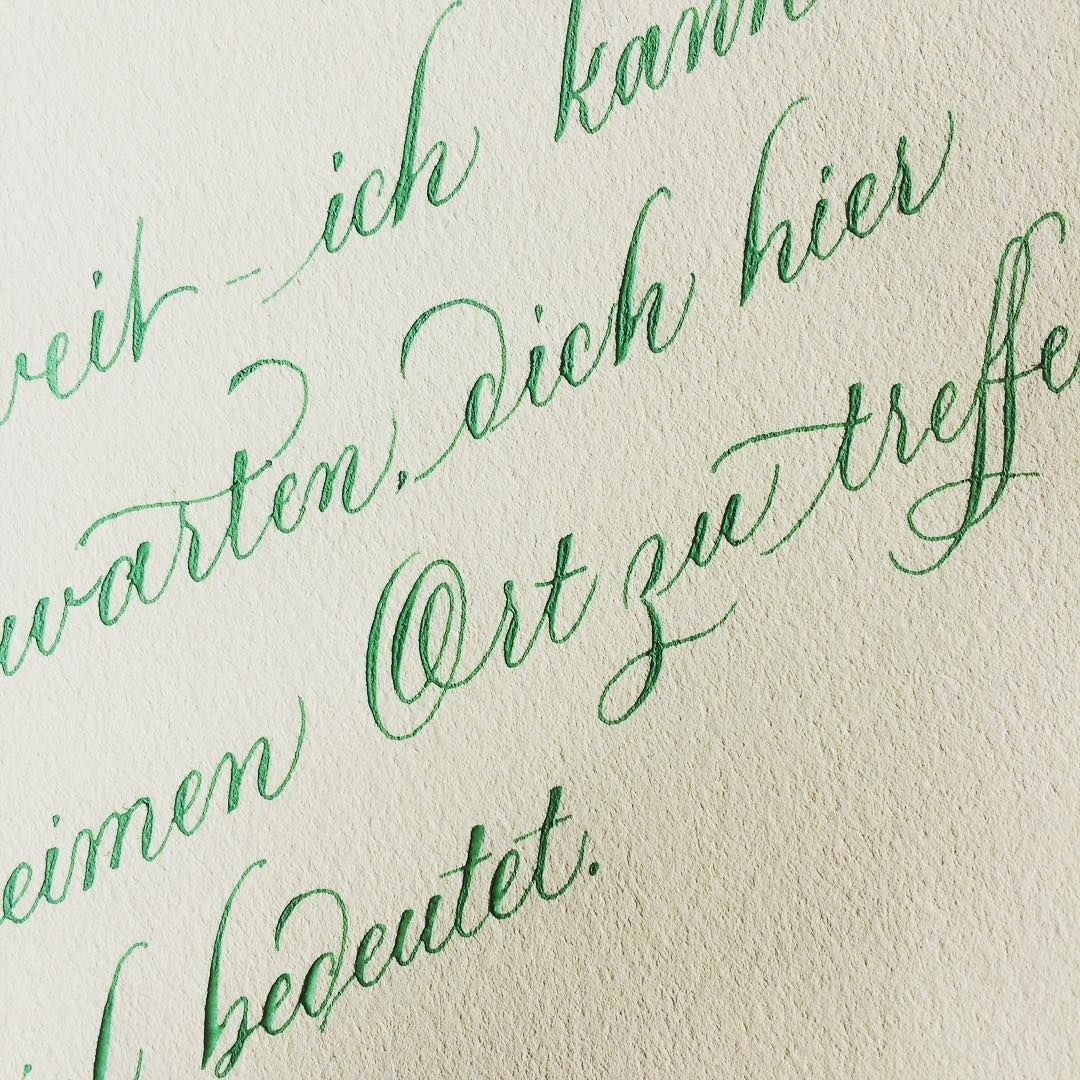 reit - ich kann
warten, dich hier
eimen Ort zu treffe
bedeutet.